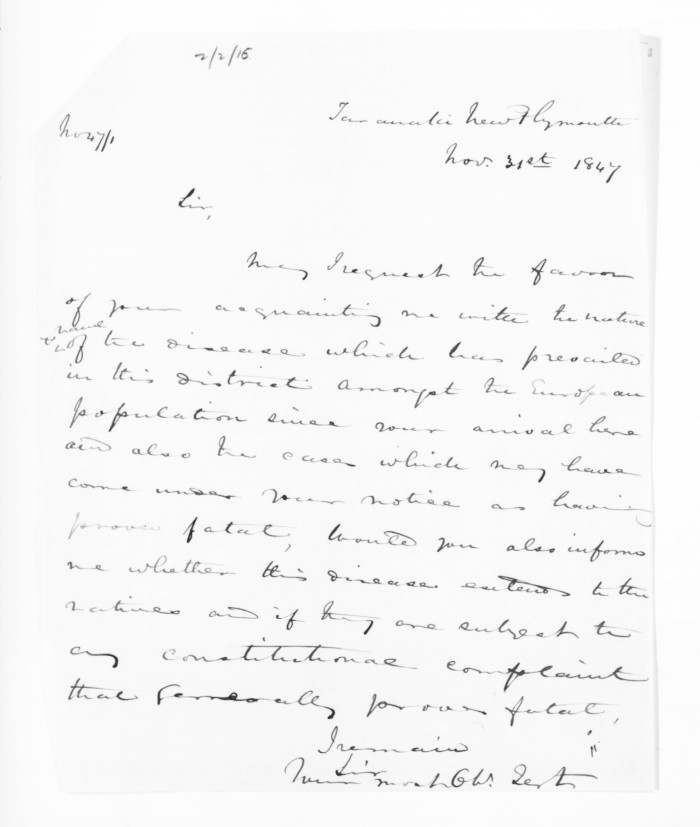 2/2/15
Taranaki New Plymouth
No 47/1
Nov. 31st 1847
Sir,
May I request the favor
of your acquainting me with the nature
& name
of the disease which has prevailed
in this district amongst the European
population since your arrival here
and also the cases which may have
come under your notice as having
proved fatal, Would you also inform
me whether this disease extends to the
natives and if they are subject to
any constitutional complaint
that generally proves fatal,
I remain
Sir
Your most Obt. Sert